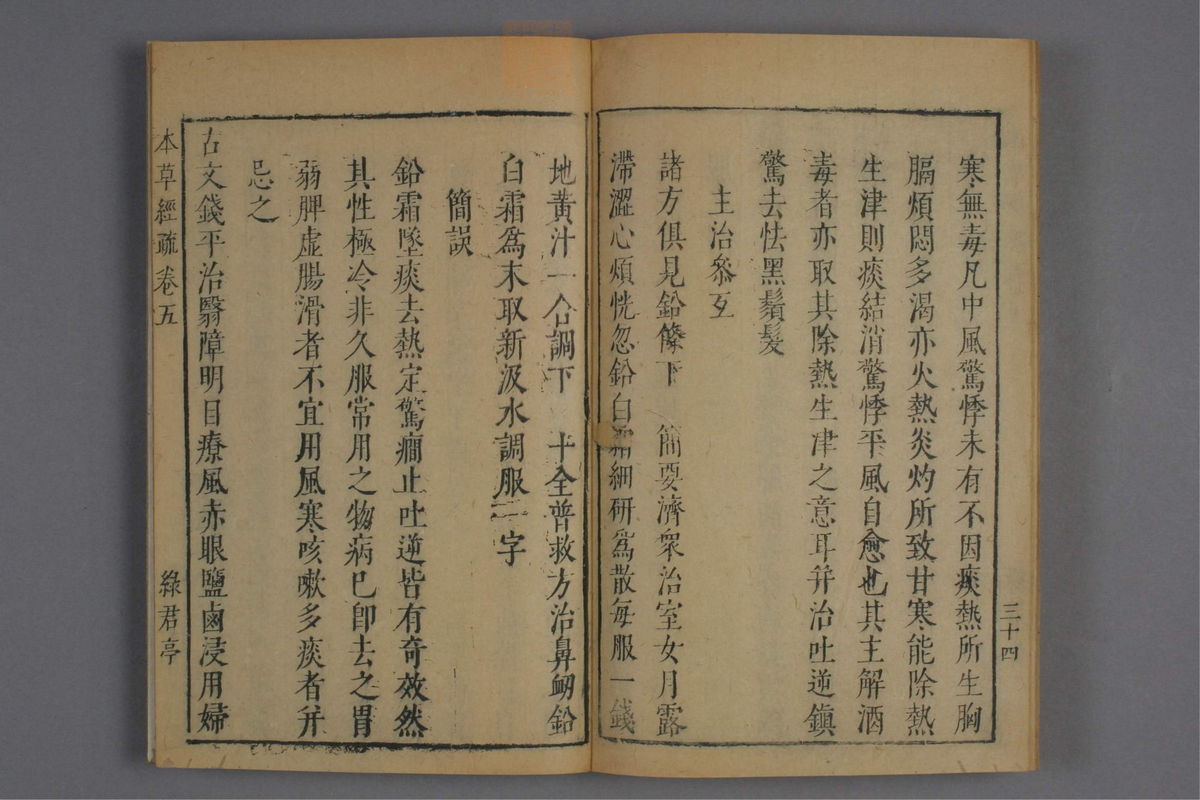 三十四
寒無毒凡中風驚悸未有不因痰熱所生胸
膈煩悶多渴亦火熱炎灼所致甘寒能除熱
生津則痰結消驚悸平風自愈也其主解酒
毒者亦取其除熱生津之意耳并治吐逆鎮
驚去怯黑鬚髮
主治參互
諸方俱見鉛條下 簡要濟衆治室女月露
滯澀心煩恍忽鉛白霜細研爲散每服一錢
地黃汁一合調下 十全普救方治鼻衄鉛
白霜爲末取新汲水調服一字
簡誤
鉛霜墜痰去熱定驚癎止吐逆皆有奇效然
其性極冷非久服常用之物病已卽去之胃
弱脾虛腸滑者不宜用風寒咳嗽多痰者并
忌之
古文錢平治翳障明目療風赤眼鹽鹵浸用婦
本草經疏卷五
綠君亭